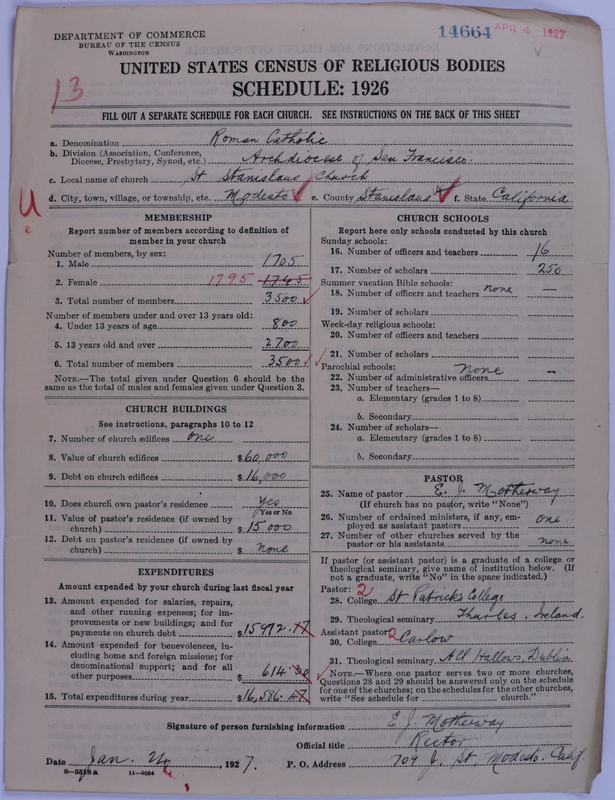 DEPARTMENT OF COMMERCE
BUREAU OF THE CENSUS
WASHINGTON
14664 APR 4 1927
13
UNITED STATES CENSUS OF RELIGIOUS BODIES
SCHEDULE: 1926
FILL OUT A SEPARATE SCHEDULE FOR EACH CHURCH. SEE INSTRUCTIONS ON THE BACK OF THIS SHEET
a. Denomination Roman Catholic
b. Division (Association, Conference, Diocese, Presbytery, Synod, etc.) Archdiocese of San Francisco.
c. Local name of church St Stanislaus Church
d. City, town, village, or township, etc. Modesto e. County Stanislaus f. State California
MEMBERSHIP
Report number of members according to definition of
member in your church
Number of members, by sex:
1. Male 1705
2. Female 1795 1745
3. Total number of members 3500
Number of members under and over 13 years old:
4. Under 13 years of age 800
5. 13 years old and over 2700
6. Total number of members 3500
NOTE.—The total given under Question 6 should be the
same as the total of males and females given under Question 3.
CHURCH BUILDINGS
See instructions, paragraphs 10 to 12
7. Number of church edifices one
8. Value of church edifices $60,000
9. Debt on church edifices $16,000
10. Does church own pastor's residence yes
Yes or No
11. Value of pastor's residence (if owned by
church) $15000
12. Debt on pastor's residence (if owned by
church) $ none
EXPENDITURES
Amount expended by your church during last fiscal year
13. Amount expended for salaries, repairs,
and other running expenses; for im-
provements or new buildings; and for
payments on church debt $15972.17
14. Amount expended for benevolences, in-
cluding home and foreign missions; for
denominational support; and for all
other purposes $614.30
15. Total expenditures during year $16,586.47
CHURCH SCHOOLS
Report here only schools conducted by this church
Sunday schools:
16. Number of officers and teachers 16
17. Number of scholars 250
Summer vacation Bible schools:
18. Number of officers and teachers none —
19. Number of scholars
Week-day religious schools:
20. Number of officers and teachers
21. Number of scholars
Parochial schools: none
22. Number of administrative officers —
23. Number of teachers—
a. Elementary (grades 1 to 8)
b. Secondary
24. Number of scholars—
a. Elementary (grades 1 to 8)
b. Secondary
PASTOR
25. Name of pastor E. J. Motherway
(If church has no pastor, write "None")
26. Number of ordained ministers, if any, em-
ployed as assistant pastors one
27. Number of other churches served by the
pastor or his assistants none
If pastor (or assistant pastor) is a graduate of a college or
theological seminary, give name of institution below. (If
not a graduate, write "No" in the space indicated.)
Pastor: 2
28. College St Patricks College
29. Theological seminary Thurles. Ireland.
Assistant pastor: 2
30. College Carlow
31. Theological seminary All Hallows, Dublin
NOTE.—Where one pastor serves two or more churches,
Questions 28 and 29 should be answered only on the schedule
for one of the churches; on the schedules for the other churches,
write "See schedule for church."
Signature of person furnishing information E. J. Motherway
Official title Rector
Date Jan. 24, 1927. P. O. Address 709 J. St, Modesto. Calif.
8—5518 a 11—9054